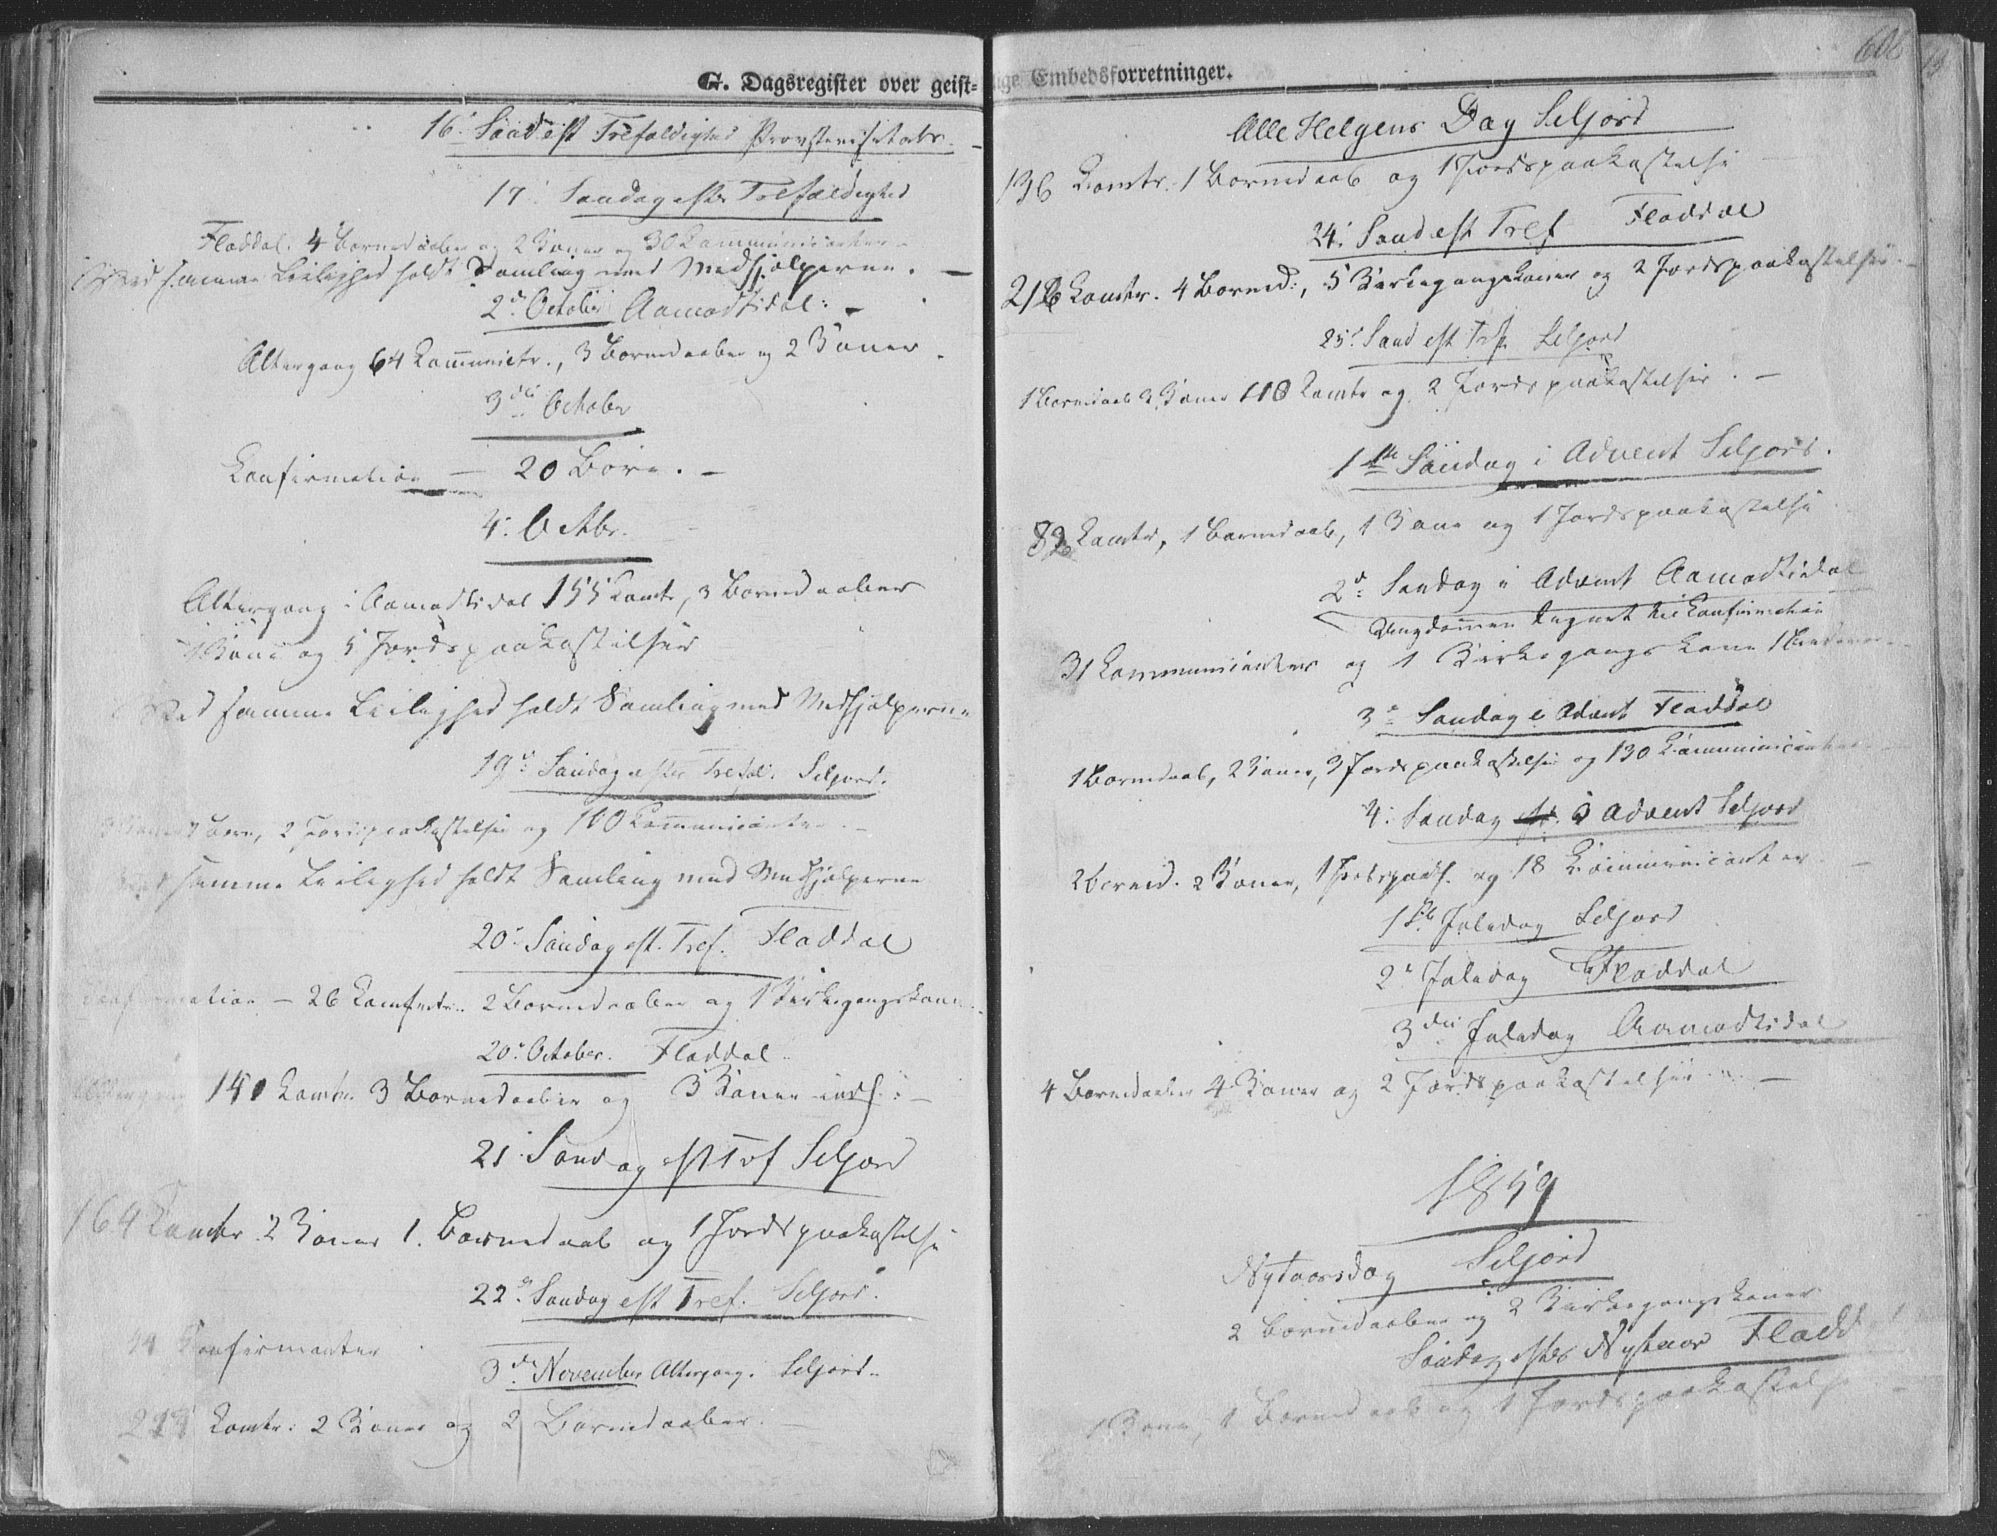 G. Dagsregister over geist-
16. Sønd eft Trefoldighed Provstevisitats.
17. Søndag efter Trefoldighed
Fladdal. 4 Barnedaaber og 2 Koner og 30 Communicanter
Ved samme Leilighed holdt Samling med Medhjælperne.
2d October Aamodtsdal.
Altergang 64 Communictr., 3 Barnedaaber og 2 Koner.
3die October
Confirmation — 20 Børn. —
4. Octbr.
Altergang i Aamodtsdal 155 Comtr, 3 Barnedaaber
1 Kone og 5 Jordspaakastelser
Ved samme Leilighed holdt Samling med Medhjælperne
19de Søndag efter Trefold. Seljord.
Børn, 2 Jordspaakastelser og 100 Communicanter
samme Leilighed holdt Samling med Medhjælperne
20. Søndag eft. Tref. Fladdal
Confirmation — 26 2 Barnedaaber og 1 Kirkegangskone
20. October. Fladdal.
Altergang 141 Comtr. 3 Barnedaaber og 3 Koner indl.
21. Søndag eft Tref Seljord
164 Comtr 2 Koner 1. Barnedaab og 1 Jordspaakastelse
22de Søndag eft Tref. Seljord.
Confirmanter
3die November Altergang i Seljord.
Comtr. 2 Koner og 2 Barnedaaber.
lige Embedsforretninger.
Alle Helgens Dag Seljord
136 Comtr. 1 Barnedaab og 1 Jordspaakastelse
24. Sønd eft Tref Fladdal
216 Comtr. 4 Barned., 5 Kirkegangskoner og 2 Jordspaakastelser.
25. Sønd eft Tref. Seljord
1 Barnedaab 2 Koner 118 Comtr og 2 Jordspaakastelser. —
1ste Søndag i Advent Seljord.
82 Comtr, 1 Barnedaab, 1 Kone og 1 Jordspaakastelse
2d Søndag i Advent Aamodtsdal
Ungdommen tegnet til Confirmation
31 Communicanter og 1 Kirkegangskone 1
3d Søndag i Advent Fladdal
1 Barnedaab, 2 Koner, 3 Jordspaakastelser og 130 Communicanter
4. Søndag i Advent Seljord
2 Barned. 2 Koner, 1 Jordspaak. og 18 Communicanter
1ste Juledag Seljord
2d Juledag Fladdal
3die Juledag Aamodtsdal
4 Barnedaaber 4 Koner og 2 Jordspaakastelser —
1859
Nytaarsdag Seljord
2 Barnedaaber og 2 Kirkegangskoner
Søndag efter Nytaar Fladdal
1 Kone, 1 Barnedaab og 1 Jordspaakastelse